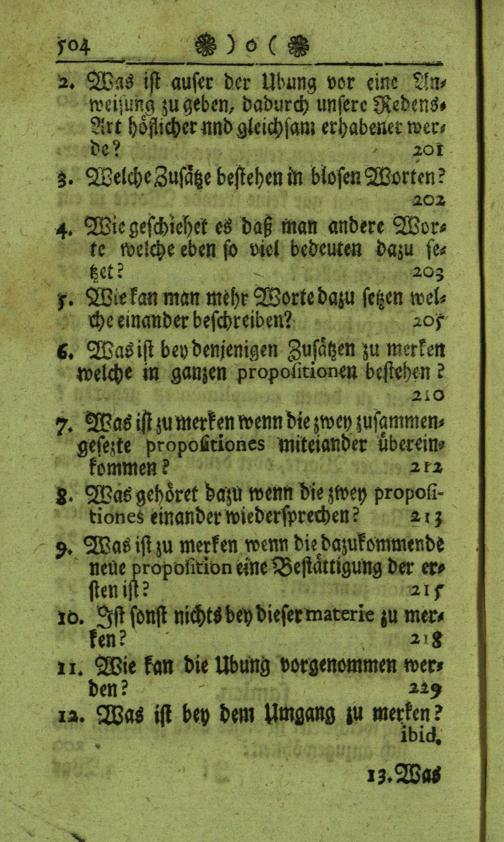 504 ❁ ) o ( ❁
2. Was ist auser der Ubung vor eine An-
weisung zu geben, dadurch unsere Redens-
Art höflicher nnd gleichsam erhabener wer-
de? 201
3. Welche Zusätze bestehen in blosen Worten?
202
4. Wie geschiehet es daß man andere Wor-
te welche eben so viel bedeuten dazu se-
tzet? 203
5. Wie kan man mehr Worte dazu setzen wel-
che einander beschreiben? 205
6. Was ist bey denjenigen Zusätzen zu merken
welche in ganzen propositionen bestehen?
210
7. Was ist zu merken wenn die zwey zusammen-
gesezte propositiones miteiander überein-
kommen? 212
8. Was gehöret dazu wenn die zwey proposi-
tiones einander wiedersprechen? 213
9. Was ist zu merken wenn die dazukommende
neue proposition eine Bestättigung der er-
sten ist? 215
10. Ist sonst nichts bey dieser materie zu mer-
ken? 218
11. Wie kan die Ubung vorgenommen wer-
den? 229
12. Was ist bey dem Umgang zu merken?
ibid.
13. Was